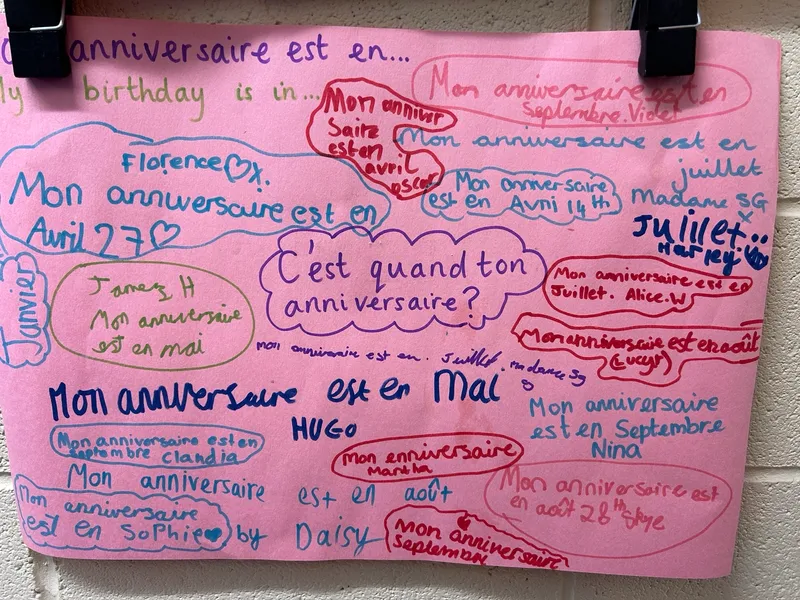 anniversaire est en...
birthday is in...
Mon anniver
saire
est en
avril
oscar
Mon anniversaire est en
Septembre. Violet
Mon anniversaire est en
juillet
Madame SG
x
Florence♡x.
Mon anniversaire est en
Avril 27♡
Mon anniversaire
est en Avri 14th
Juillet..
Harley
Janvier
James H
Mon anniversaire
est en mai
C'est quand ton
anniversaire?
Mon anniversaire est en
Juillet. Alice.W
Mon anniversaire est en août
(Lucy)
mon anniversaire est en. Juillet. madame sg
Mon anniversaire est en Mai
HUGO
Mon anniversaire
est en Septembre
Nina
Mon anniversaire est en
septembre Clandia
Mon enniversaire
Martha
Mon anniversaire est en août
by Daisy
Mon anniversaire
est en Sophie♥
Mon anniversaire
Septembre
Mon anniversaire est
en août 28th Skye